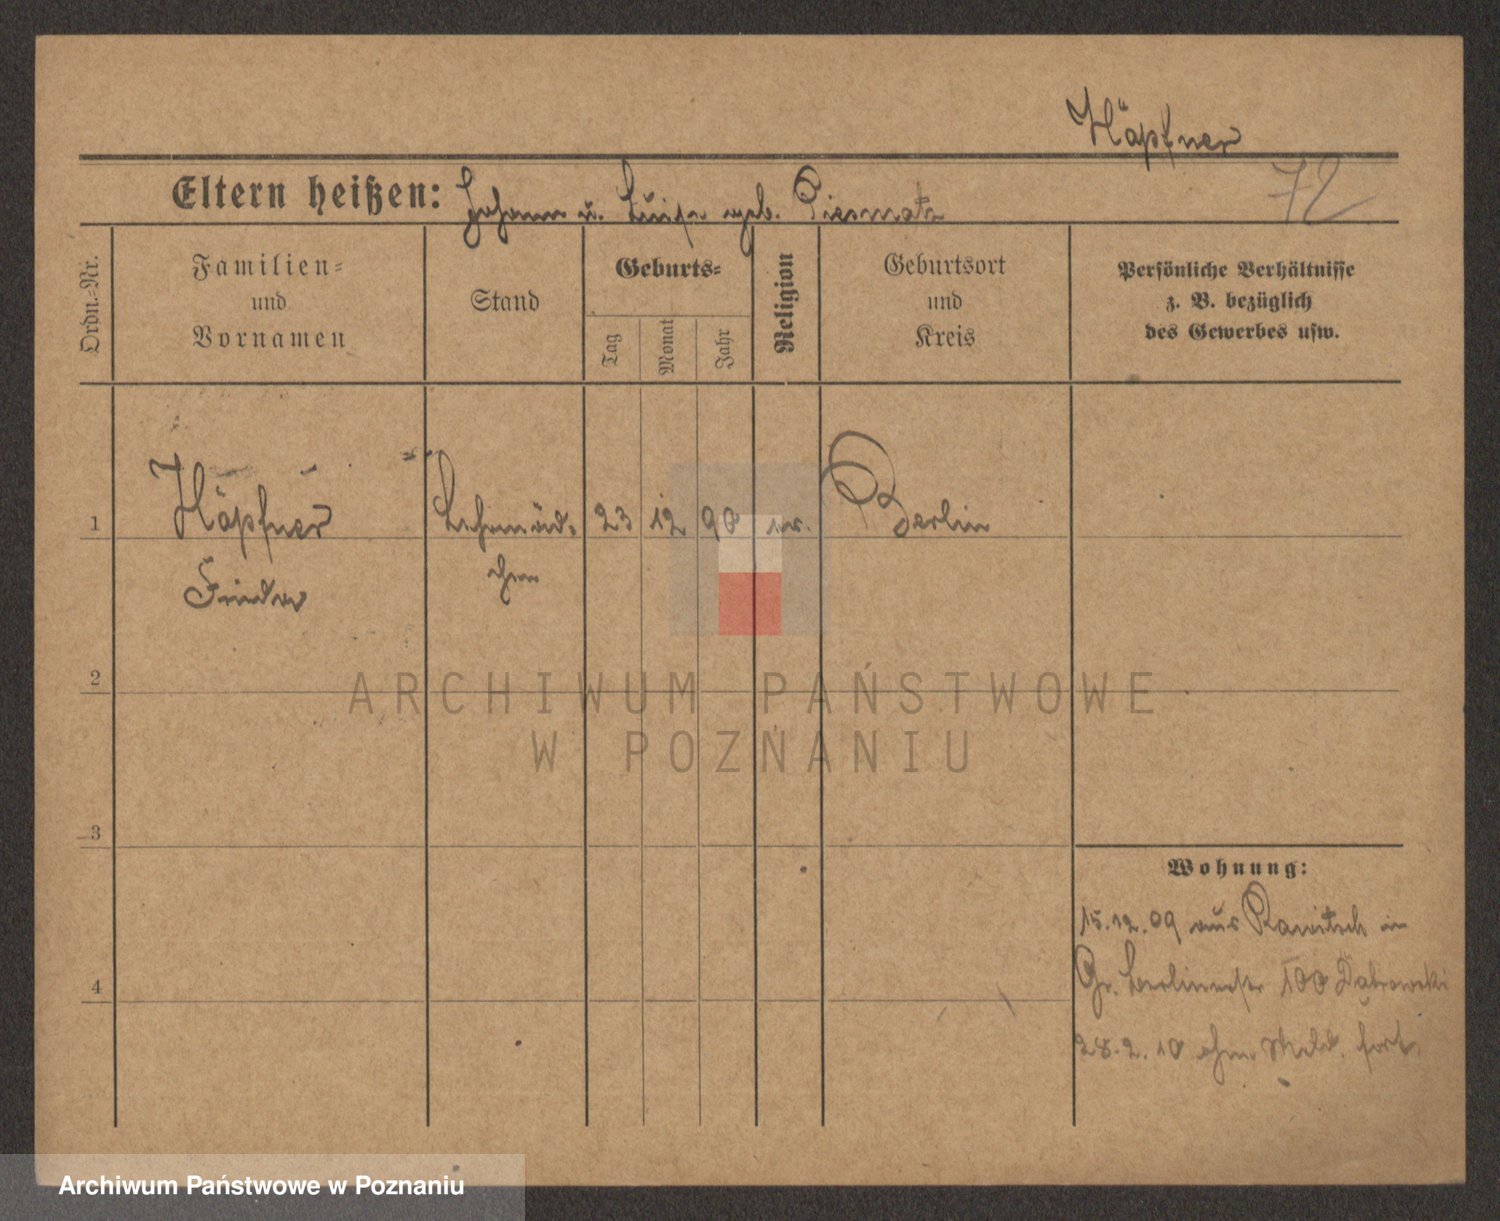 Häpfner
72
Eltern heißen: Johann u. Luise geb. Piesmatz
Ordn.-Nr.
Familien-
und
Vornamen
Stand
Geburts-
Tag
Monat
Jahr
Religion
Geburtsort
und
Kreis
Persönliche Verhältnisse
z. B. bezüglich
des Gewerbes usw.
1
Häpfner
Lehrmäd-
chen
23 12 90
Berlin
2
3
4
Wohnung:
15.12.09 aus Rawitsch in
Gr. Berlinerstr 100 Dabrowski
28.2.10 ohne Meld. fort.
ARCHIWUM PAŃSTWOWE
W POZNANIU
Archiwum Państwowe w Poznaniu